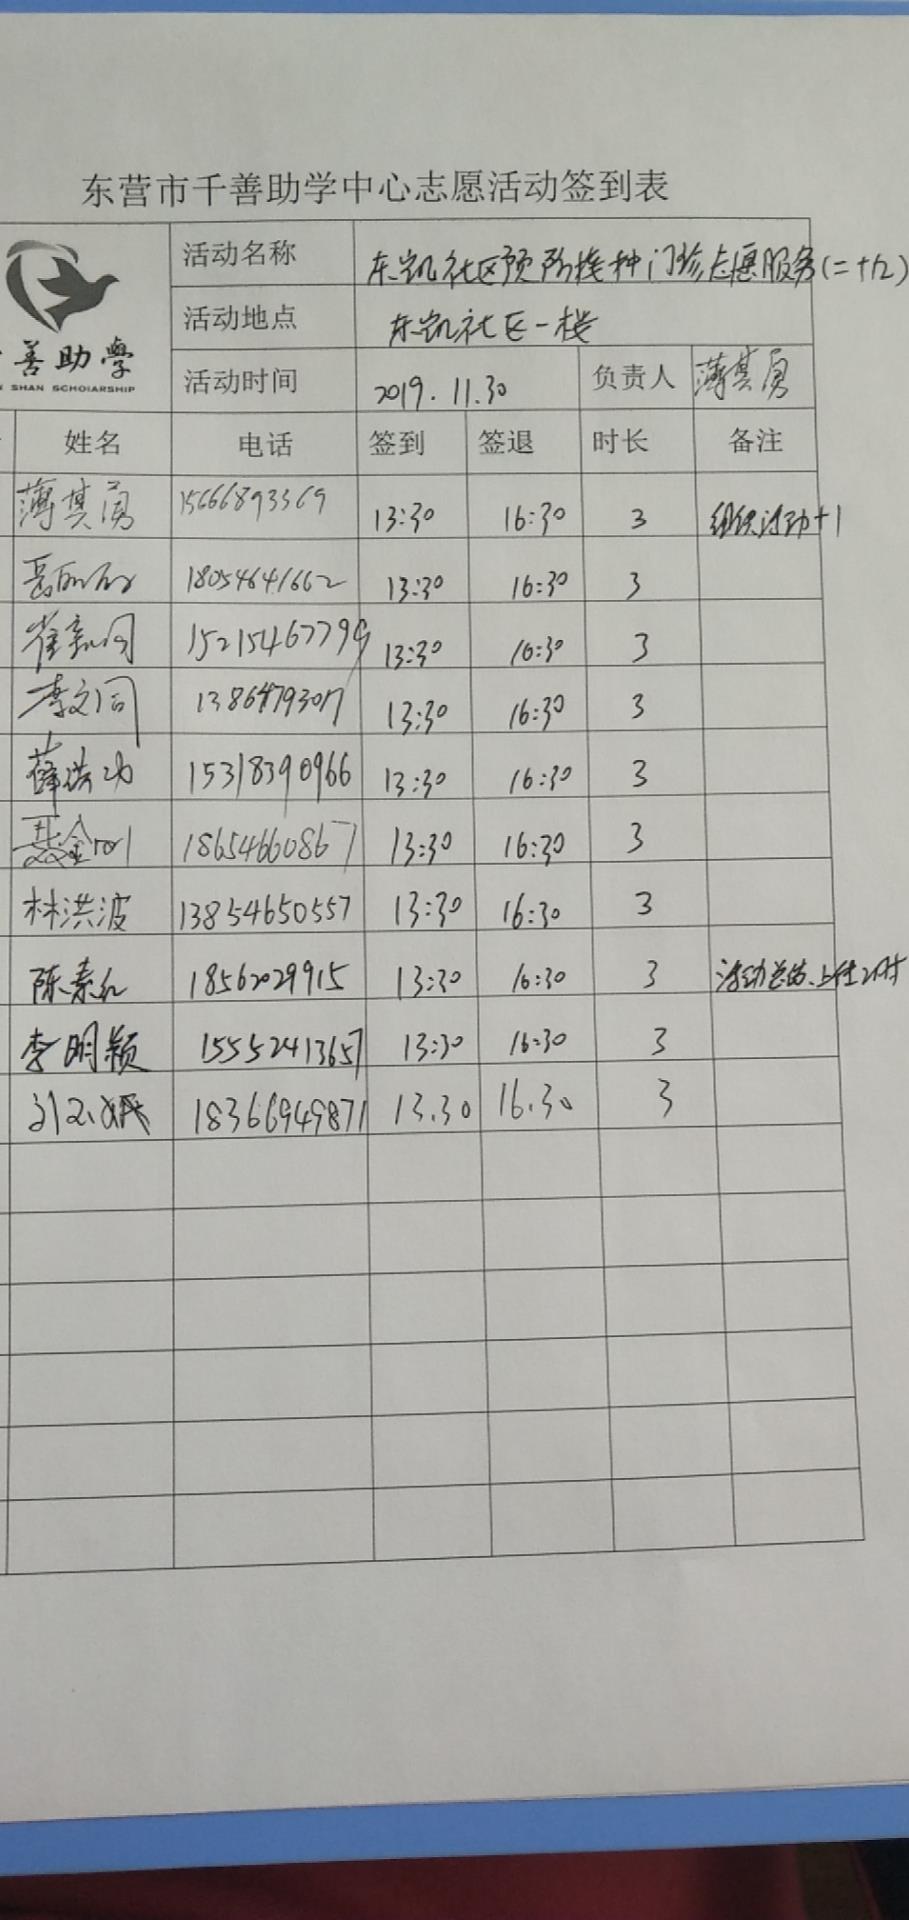 东营市千善助学中心志愿活动签到表
善助學
SHAN SCHOIARSHIP
活动名称 东凯社区预防接种门诊志愿服务(二十六)
活动地点 东凯社区一楼
活动时间 2019.11.30 负责人 薄其勇
姓名 电话 签到 签退 时长 备注
薄其勇 15666893369 13:30 16:30 3 组织活动+1
18054641662 13:30 16:30 3
崔 15215467799 13:30 16:30 3
李文同 13864793017 13:30 16:30 3
薛洪功 15318390966 13:30 16:30 3
18654660867 13:30 16:30 3
林洪波 13854650557 13:30 16:30 3
陈素红 18562029915 13:30 16:30 3 活动总结、上传2小时
李明颖 15552413657 13:30 16:30 3
18366949871 13.30 16.30 3